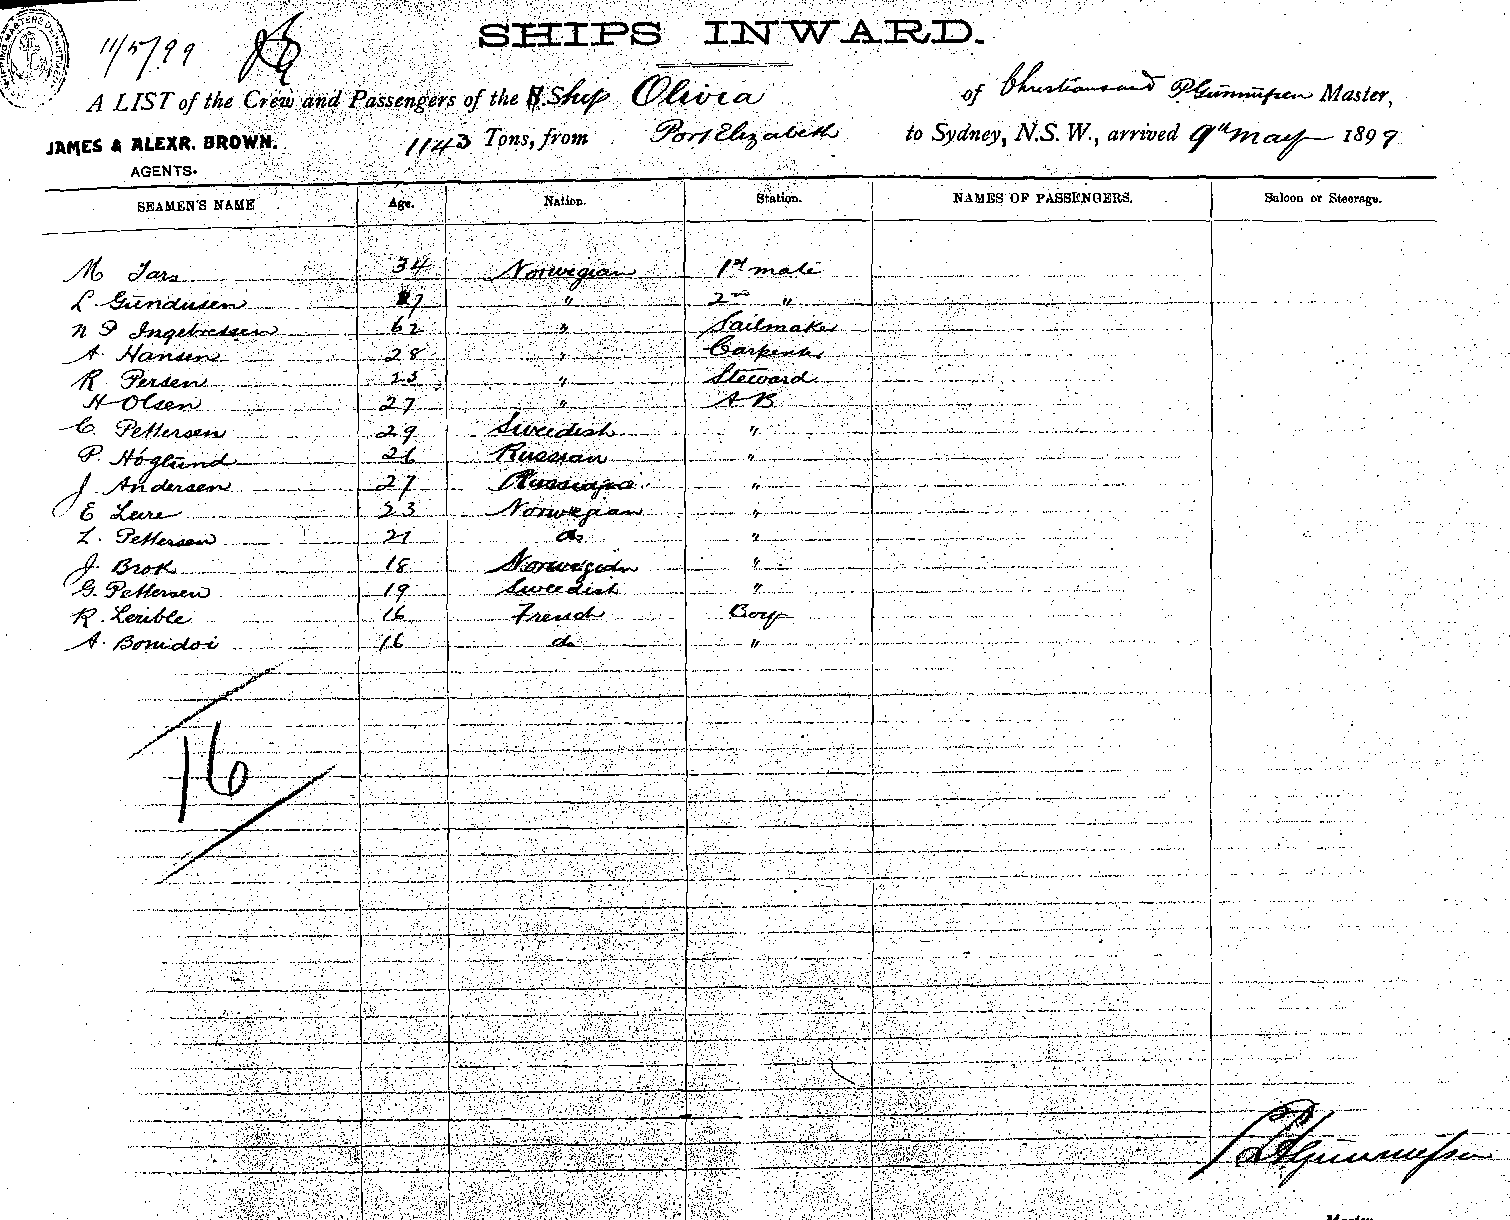 11/5/99
SHIPS INWARD.
A LIST of the Crew and Passengers of the Ship Olivia of Christiansand P. Gunnufsen Master,
JAMES & ALEXR. BROWN. 1143 Tons, from Port Elizabeth to Sydney, N.S.W., arrived 9th May 1899
AGENTS.
SEAMEN'S NAME Age. Nation. Station. NAMES OF PASSENGERS. Saloon or Steerage.
M Tars 34 Norwegian 1st mate
L Gundusen 27 " 2nd "
N P Ingebretsen 62 " Sailmaker
A. Hansen 28 " Carpenter
R Persen 23 " Steward
H Olsen 27 " A B
C. Pettersen 29 Swedish "
P. Höglund 26 Russian "
J. Andersen 27 "
E Lure 23 Norwegian "
L. Pettersen 21 do "
J. Brok 18 Norwegian "
G. Pettersen 19 Swedish "
R. Lerible 16 French Boy
A. Bonidoi 16 do "
16
P Gunnufsen
Master.